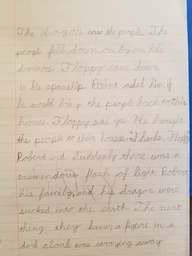 The dragon saw the people. The
people fell down one by one like
dominoes. Floppy came down
in his spaceship. Robert asked him if
he would bring the people back to their
homes. Floppy said yes. He brought
the people to their houses. "Thanks, Floppy"
Robert said. Suddenly there was a
tremendous flash of light. Robert
his family, and his dragon were
sucked into the earth. The next
thing they knew, a figure in a
dark cloak was carrying away